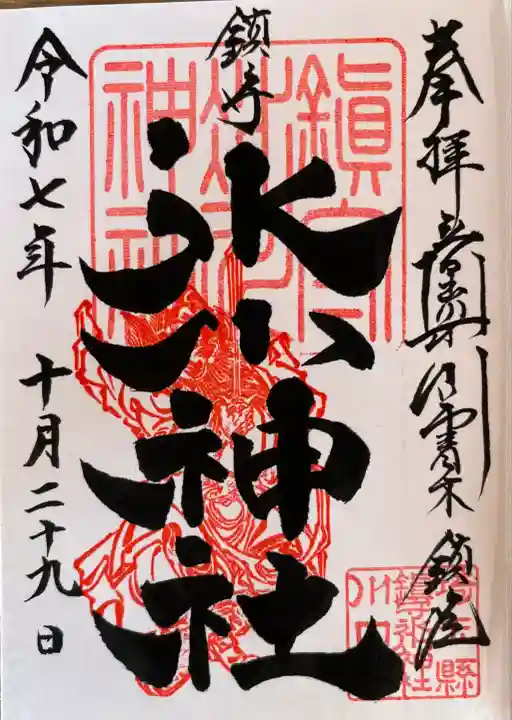 奉拝
青木
鎮座
埼玉縣
鎮守氷川神社
川口
鎮守
氷川神社
鎮守
氷川
神社
令和七年 十月二十九日